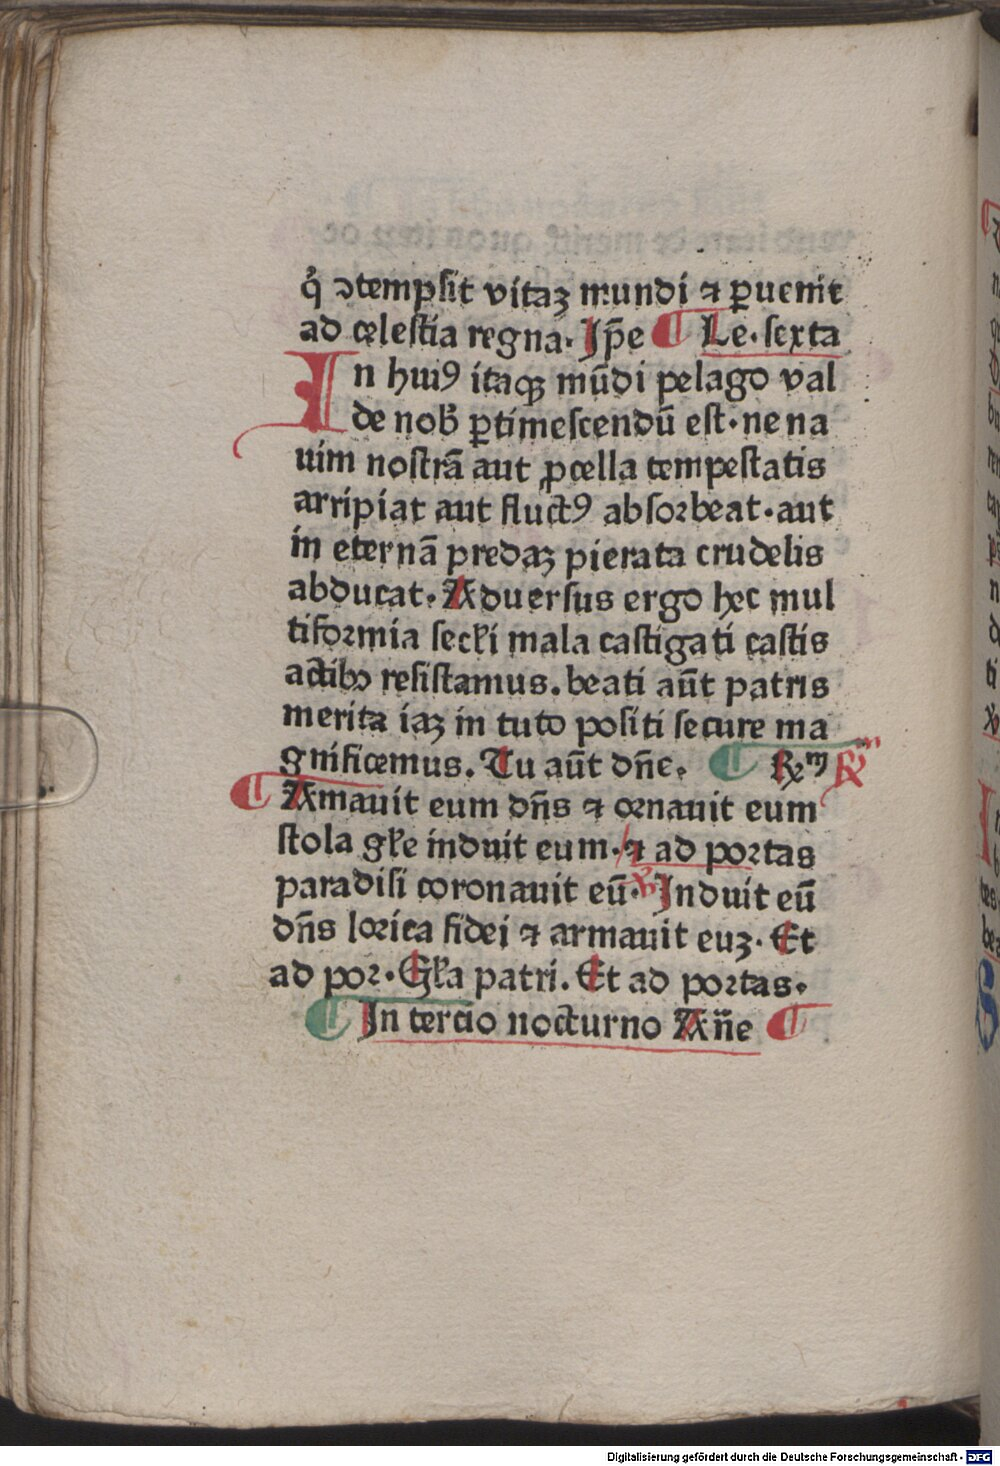 qͥ ꝯtempsit vitaꝫ mundi ⁊ ꝑuenit
ad celestia regna. Ip̄e ¶ Le. sexta
In huiꝰ itaqꝫ mūdi pelago val
de nob̄ ꝑtimescendū est. ne na
uim nostrā aut ꝓcella tempestatis
arripiat aut fluctꝰ absorbeat. aut
in eternā predaꝫ pierata crudelis
abducat. Aduersus ergo hec mul
tiformia secl̄i mala castigati castis
actibꝫ resistamus. beati aūt patris
merita iaꝫ in tuto positi secure ma
gnificemus. Tu aūt dn̄e. ¶ ℞ᵐ ℞ᵐ
¶ Amauit eum dn̄s ⁊ ornauit eum
stola gl̄e induit eum. ⁊ ad portas
paradisi coronauit eū. ℣ Induit eū
dn̄s lorica fidei ⁊ armauit euꝫ. Et
ad por. Gl̄a patri. Et ad portas.
¶ In tercio nocturno An̄e ¶
Digitalisierung gefördert durch die Deutsche Forschungsgemeinschaft - DFG